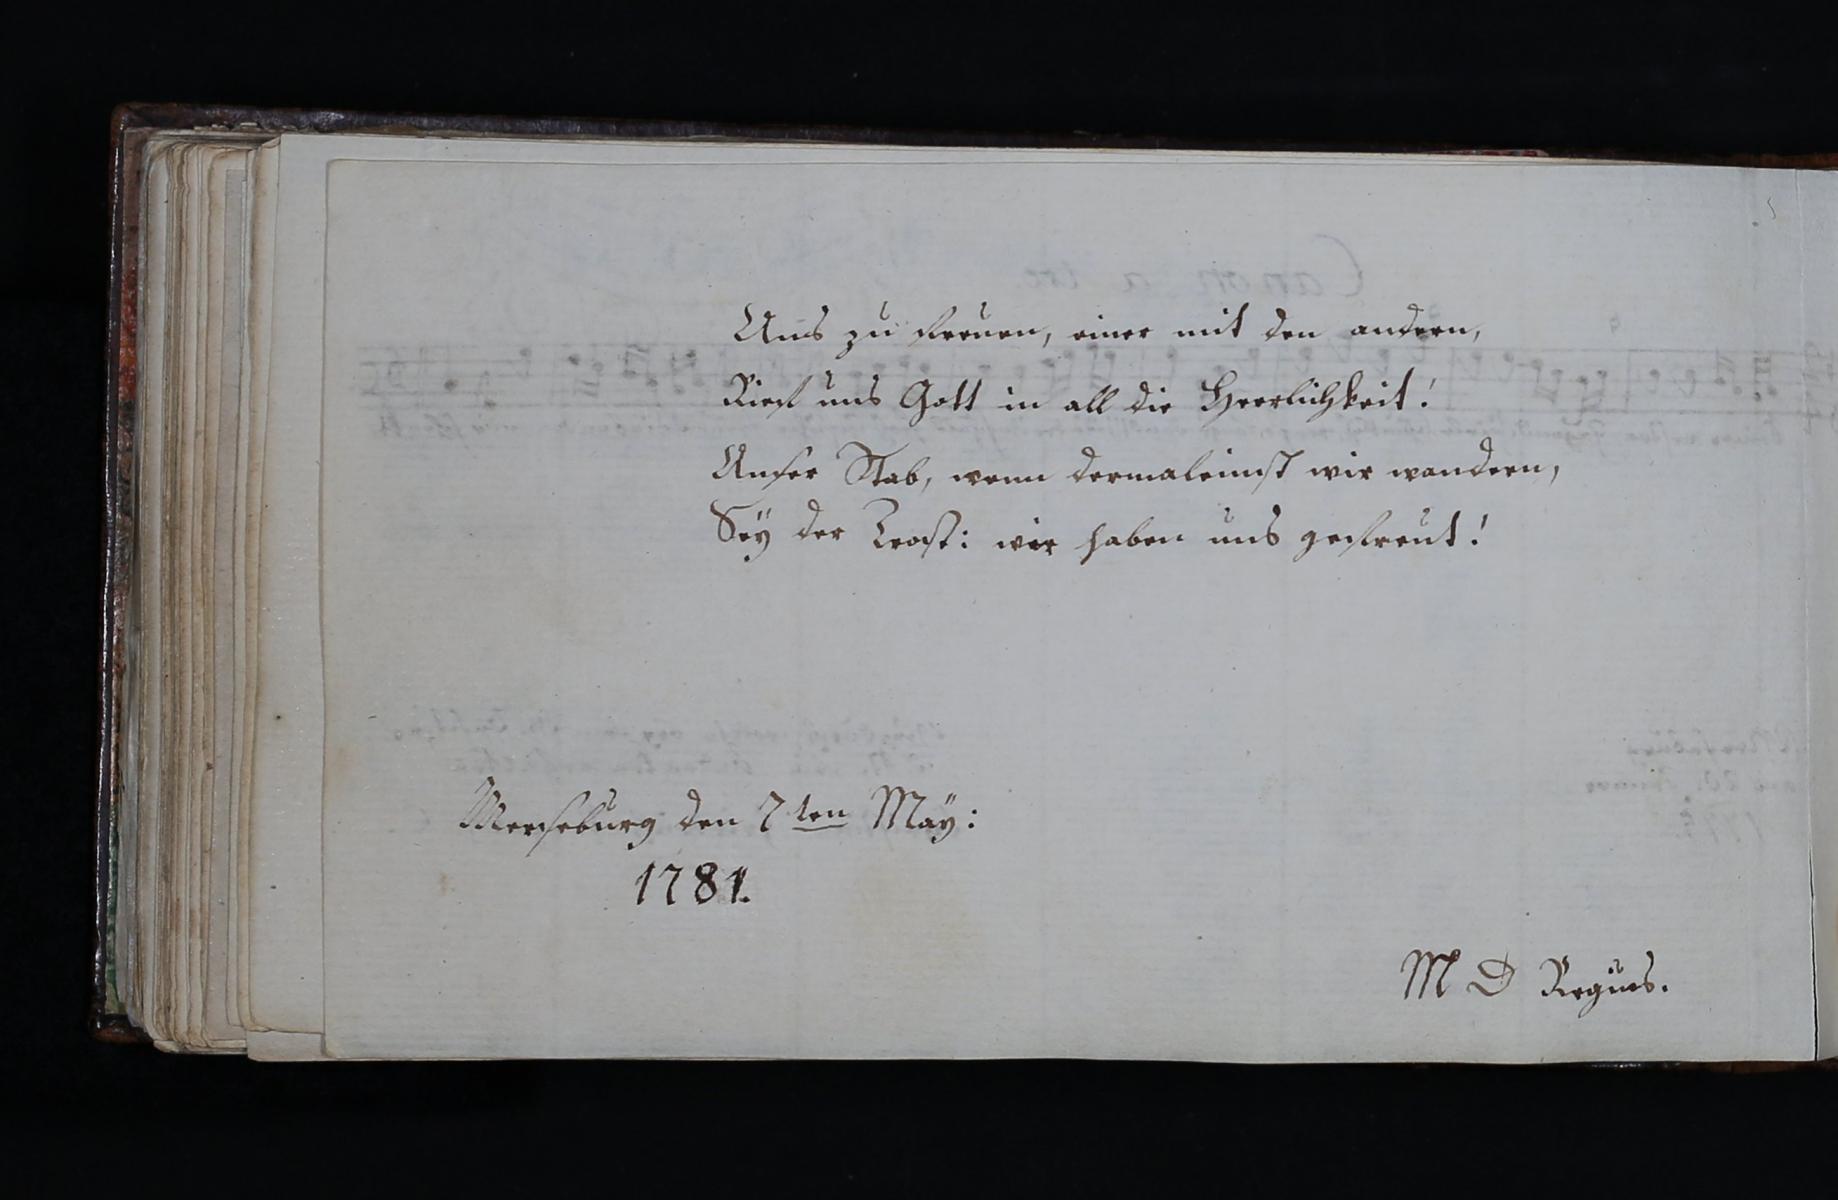 Uns zu freuen, einer mit den andern,
Rief uns Gott in all die Herrlichkeit!
Unser Stab, wenn dermaleinst wir wandern,
Seÿ der Trost: wir haben uns gefreut!
Merseburg den 7ten Maÿ:
1781.
M D